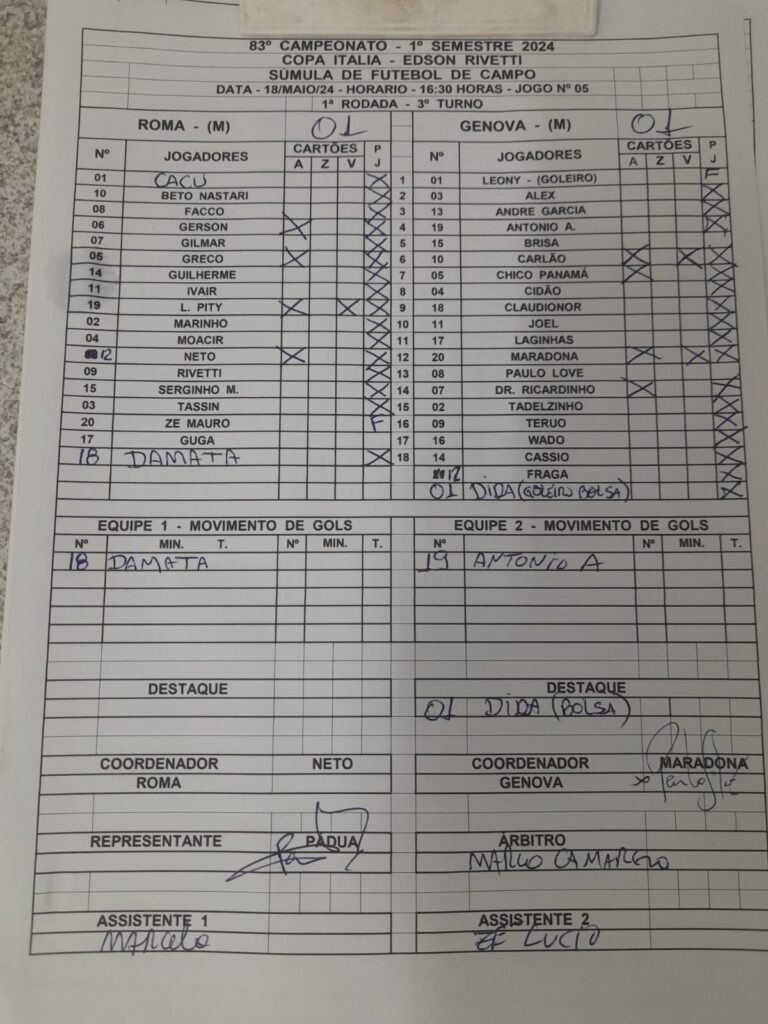 83º CAMPEONATO - 1º SEMESTRE 2024
COPA ITALIA - EDSON RIVETTI
SÚMULA DE FUTEBOL DE CAMPO
DATA - 18/MAIO/24 - HORARIO - 16:30 HORAS - JOGO Nº 05
1ª RODADA - 3º TURNO
ROMA - (M) 01 GENOVA - (M) 01
Nº JOGADORES CARTÕES A Z V P J Nº JOGADORES CARTÕES A Z V P J
01 CACU X 1 01 LEONY - (GOLEIRO) F
10 BETO NASTARI X 2 03 ALEX X
08 FACCO X 3 13 ANDRE GARCIA X
06 GERSON X X 4 19 ANTONIO A. X
07 GILMAR X 5 15 BRISA
05 GRECO X X 6 10 CARLÃO X X X
14 GUILHERME X 7 05 CHICO PANAMÁ X X
11 IVAIR X 8 04 CIDÃO X
19 L. PITY X X X 9 18 CLAUDIONOR X
02 MARINHO X 10 11 JOEL X
04 MOACIR X 11 17 LAGINHAS X
12 NETO X X 12 20 MARADONA X X X
09 RIVETTI X 13 08 PAULO LOVE
15 SERGINHO M. X 14 07 DR. RICARDINHO X X
03 TASSIN X 15 02 TADELZINHO X
20 ZE MAURO F 16 09 TERUO X
17 GUGA 17 16 WADO X
18 DAMATA X 18 14 CASSIO X
12 FRAGA X
01 DIDA (GOLEIRO BOLSA) X
EQUIPE 1 - MOVIMENTO DE GOLS EQUIPE 2 - MOVIMENTO DE GOLS
Nº MIN. T. Nº MIN. T. Nº Nº MIN. T.
18 DAMATA 19 ANTONIO A
DESTAQUE DESTAQUE
01 DIDA (BOLSA)
COORDENADOR NETO COORDENADOR MARADONA
ROMA GENOVA
REPRESENTANTE PÁDUA ÁRBITRO
MARCO CAMARGO
ASSISTENTE 1 ASSISTENTE 2
MARCELO ZÉ LUCIO